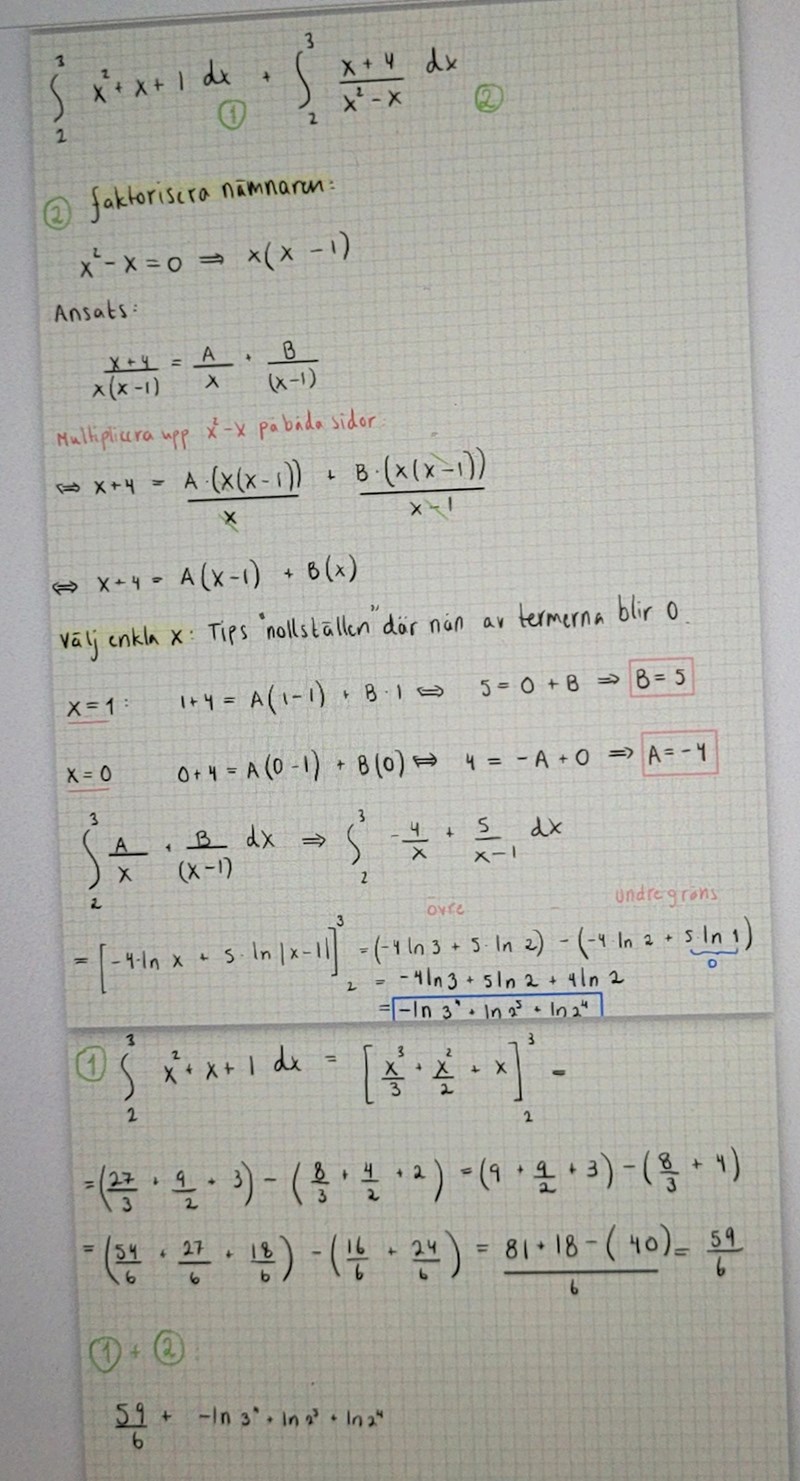 ∫₂³ x² + x + 1 dx ① + ∫₂³ (x + 4)/(x² - x) dx ②
② faktorisera nämnaren:
x² - x = 0 ⇒ x(x - 1)
Ansats:
(x + 4)/(x(x - 1)) = A/x + B/(x - 1)
Multiplicera upp x² - x på båda sidor
⇔ x + 4 = (A · (x(x - 1)))/x + (B · (x(x - 1)))/(x - 1)
⇔ x + 4 = A(x - 1) + B(x)
Välj enkla x: Tips "nollställen" där nån av termerna blir 0.
x = 1: 1 + 4 = A(1 - 1) + B · 1 ⇔ 5 = 0 + B ⇒ B = 5
x = 0 0 + 4 = A(0 - 1) + B(0) ⇔ 4 = -A + 0 ⇒ A = -4
∫₂³ A/x + B/(x - 1) dx ⇒ ∫₂³ -4/x + 5/(x - 1) dx
övre undre gräns
= [-4·ln x + 5·ln|x - 1|]₂³ = (-4 ln 3 + 5·ln 2) - (-4 ln 2 + 5 ln 1)
0
= -4 ln 3 + 5 ln 2 + 4 ln 2
= -ln 3⁴ + ln 2⁵ + ln 2⁴
① ∫₂³ x² + x + 1 dx = [x³/3 + x²/2 + x]₂³ =
= (27/3 + 9/2 + 3) - (8/3 + 4/2 + 2) = (9 + 9/2 + 3) - (8/3 + 4)
= (54/6 + 27/6 + 18/6) - (16/6 + 24/6) = (81 + 18 - (40))/6 = 59/6
① + ② :
59/6 + -ln 3⁴ + ln 2⁵ + ln 2⁴